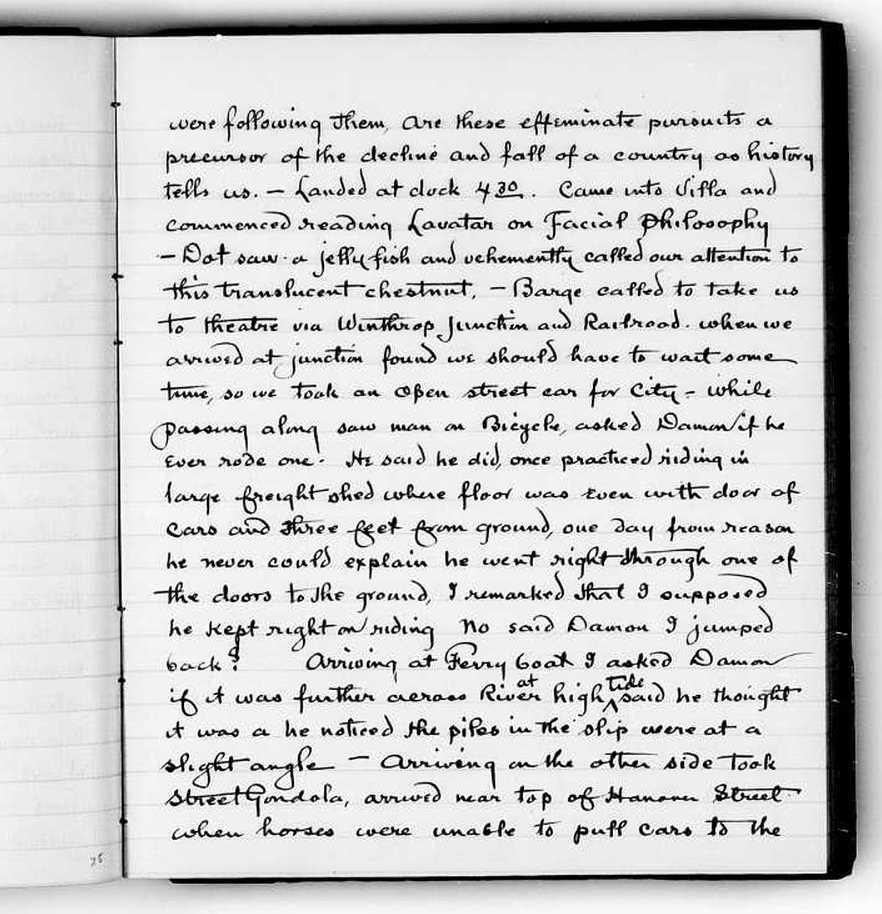 were following them, are these effeminate pursuits a
precursor of the decline and fall of a country as history
tells us. — Landed at dock 4 30. Came into Villa and
commenced reading Lavatar on Facial Philosophy
— Dot saw a jelly fish and vehemently called our attention to
this translucent chestnut, — Barge called to take us
to theatre via Winthrop Junction and Railroad. when we
arrived at junction found we should have to wait some
time, so we took an open street car for City — while
passing along saw man on Bicycle, asked Damon if he
ever rode one. He said he did, once practiced riding in
large freight shed where floor was even with door of
cars and three feet from ground, one day from reason
he never could explain he went right through one of
the doors to the ground, I remarked that I supposed
he kept right on riding No said Damon I jumped
back? Arriving at Ferry boat I asked Damon
if it was further across River at high tide said he thought
it was a he noticed the piles in the slip were at a
slight angle — Arriving on the other side took
Street Gondola, arrived near top of Hanover Street
when horses were unable to pull cars to the
25